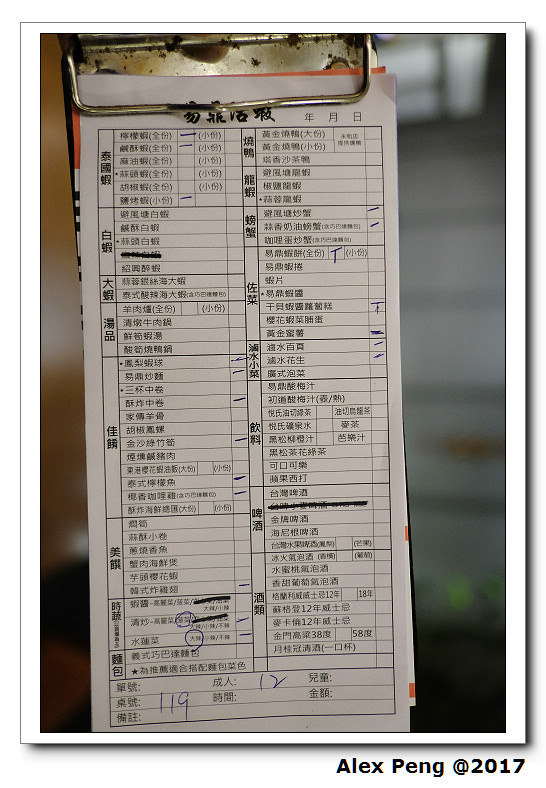 易鼎活蝦
年 月 日
泰國蝦
檸檬蝦(全份) (小份)
鹹酥蝦(全份) (小份)
麻油蝦(全份) (小份)
*蒜頭蝦(全份) (小份)
胡椒蝦(全份) (小份)
鹽烤蝦(全份) (小份)
白蝦
避風塘白蝦
鹹酥白蝦
*蒜頭白蝦
紹興醉蝦
大蝦
蒜蓉銀絲海大蝦
泰式酸辣海大蝦(含巧巴達麵包)
湯品
羊肉爐(全份) (小份)
清燉牛肉鍋
鮮筍蝦湯
酸筍燒鴨鍋
佳餚
*鳳梨蝦球
易鼎炒麵
*三杯中卷
酥炸中卷
家傳羊骨
胡椒鳳螺
金沙綠竹筍
煙燻鹹豬肉
東港櫻花蝦油飯(大份) (小份)
泰式檸檬魚
椰香咖哩雞(含巧巴達麵包)
酥炸海鮮總匯(大份) (小份)
美饌
燜筍
蒜酥小卷
蔥燒香魚
蟹肉海鮮煲
芋頭櫻花蝦
韓式炸雞翅
時蔬
蝦醬-高麗菜/菠菜/
大辣/小辣
清炒-高麗菜/菠菜/
大辣/小辣/不辣
水蓮菜 大辣/小辣/不辣
麵包
義式巧巴達麵包
★為推薦適合搭配麵包菜色
燒鴨
黃金燒鴨(大份)
黃金燒鴨(小份)
永和店
提供燒鴨
塔香沙茶鴨
龍蝦
避風塘龍蝦
椒鹽龍蝦
*蒜蓉龍蝦
螃蟹
避風塘炒蟹
蒜香奶油螃蟹(含巧巴達麵包)
咖哩蛋炒蟹(含巧巴達麵包)
佐菜
易鼎蝦餅(全份) (小份)
易鼎蝦捲
蝦片
*易鼎蝦醬
干貝蝦醬蘿蔔糕
櫻花蝦菜脯蛋
黃金蜜薯
滷水小菜
滷水百頁
滷水花生
廣式泡菜
飲料
易鼎酸梅汁
初道酸梅汁(壺/熱)
悅氏油切綠茶 油切烏龍茶
悅氏礦泉水 麥茶
黑松柳橙汁 芭樂汁
黑松茶花綠茶
可口可樂
蘋果西打
啤酒
台灣啤酒
金牌啤酒
海尼根啤酒
台灣水果啤酒(鳳梨) (芒果)
酒類
冰火氣泡酒(香檳) (葡萄)
水蜜桃氣泡酒
香甜葡萄氣泡酒
格蘭利威威士忌12年 18年
蘇格登12年威士忌
麥卡倫12年威士忌
金門高粱38度 58度
月桂冠清酒(一口杯)
單號: 成人: 12 兒童:
桌號: 119 時間: 金額:
備註:
Alex Peng @2017